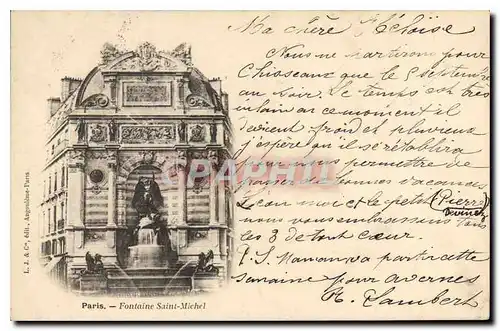 Ma chère Héloïse
Nous ne partirons pour
Chisseaux que le 5 septembre
au soir. Le temps est très
vilain en ce moment il
devient froid et pluvieux
j'espère qu'il se rétablira
pour nous permettre de
passer de bonnes vacances
Léon moi et le petit (Pierre)
devinez
nous vous embrassons tous
les 3 de tout cœur.
P.S. Maman va partir cette
semaine pour
H. Lambert
L. J. & Cie, édit., Angoulême-Paris
Paris. — Fontaine Saint-Michel
CARTORUM